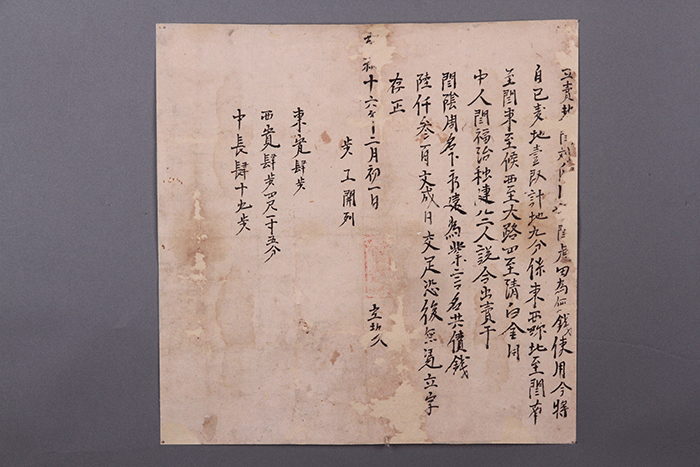 立賣契 為缺錢使用今將
自己麦地壹段計地九分係東西畛北至閆南
至閆東至候西至大路四至清白仝同
中人閆福治 二人説合出賣于
閆陰周名下永遠為業 共價錢
陸仟叁百文成日交足恐後無憑立字
存正
十六年十二月初一日 立契人
步工開列
東寬肆步
西寬肆步四尺一寸五分
中長肆十九步